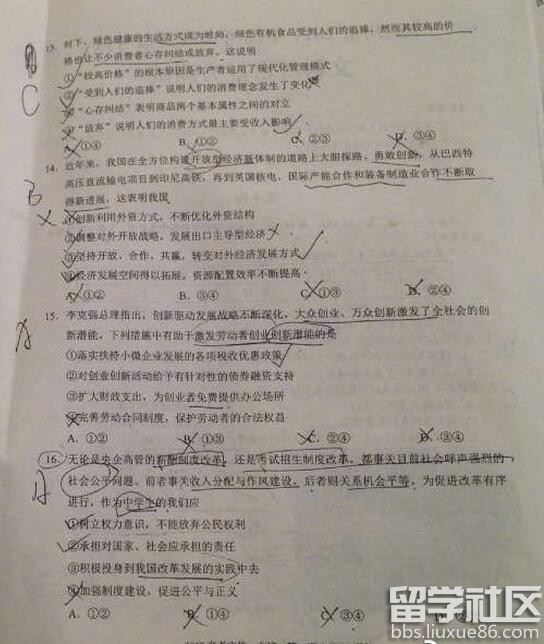 13. 时下，绿色健康的生活方式成为时尚，绿色有机食品受到人们的追捧，然而其较高的价
格也让不少消费者心存纠结或放弃。这说明
①“较高价格”的根本原因是生产者运用了现代化管理模式
②“受到人们的追捧”说明人们的消费理念发生了变化
③“心存纠结”表明商品两个基本属性之间的对立
④“放弃”说明人们的消费方式最主要受收入影响
A. ①④ B. ①② C. ②③ D. ③④
C
14. 近年来，我国在全方位构建开放型经济新体制的道路上大胆探路、勇敢创新，从巴西特
高压直流输电项目到印尼高铁，再到英国核电，国际产能合作和装备制造业合作不断取
得新进展，这表明我国
①创新利用外资方式，不断优化外资结构
②调整对外开放战略，发展出口主导型经济
③坚持开放、合作、共赢，转变对外经济发展方式
④经济发展空间得以拓展，资源配置效率不断提高
A. ①② B. ③④ C. ①③ D. ②④
B
15. 李克强总理指出，创新驱动发展战略不断深化，大众创业、万众创新激发了全社会的创
新潜能，下列措施中有助于激发劳动者创业创新潜能的是
①落实扶持小微企业发展的各项税收优惠政策
②对创业创新活动给予有针对性的债券融资支持
③扩大财政支出，为创业者免费提供办公场所
④完善劳动合同制度，保护劳动者的合法权益
A. ①② B. ①③ C. ②④ D. ③④
A
16. 无论是央企高管的薪酬制度改革，还是考试招生制度改革，都事关目前社会呼声强烈的
社会公平问题。前者事关收入分配与作风建设，后者则关系机会平等。为促进改革有序
进行，作为中学生的我们应
①树立权力意识，不能放弃公民权利
②承担对国家、社会应承担的责任
③积极投身到我国改革发展的实践中去
④加强制度建设，促进公平与正义
A. ①② B. ①④ C. ③④
留学社区
bbs.liuxue86.com